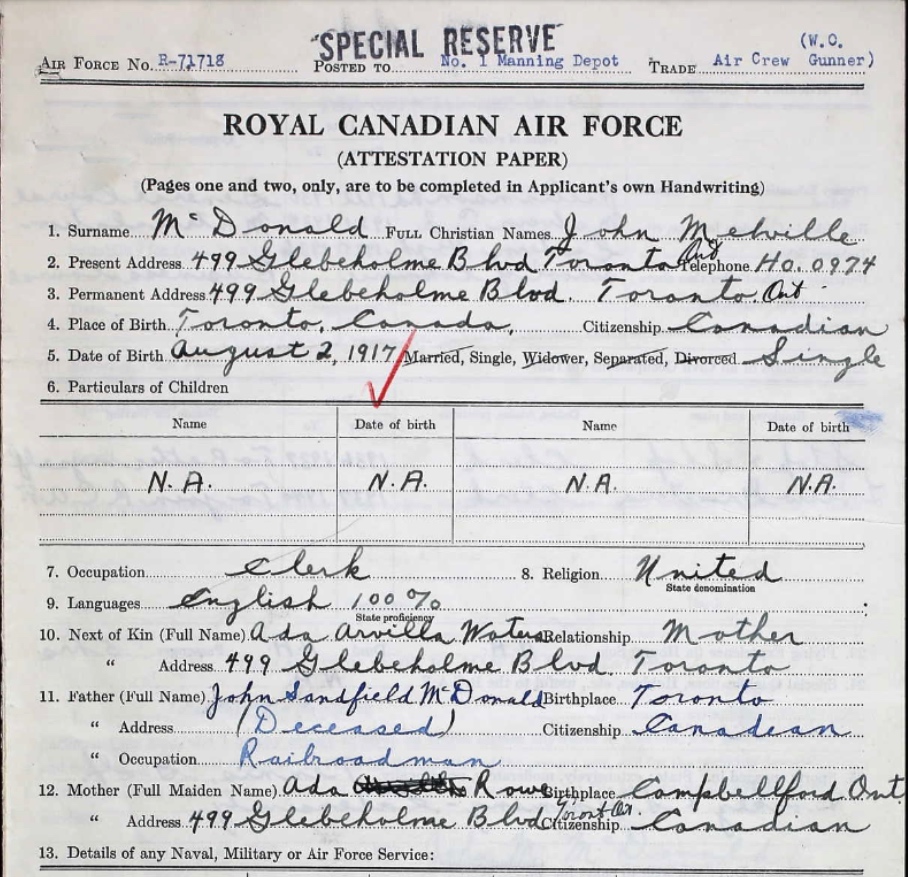 "SPECIAL RESERVE"
(W.O.
AIR FORCE No. R-71718 POSTED TO No. 1 Manning Depot TRADE Air Crew Gunner)
ROYAL CANADIAN AIR FORCE
(ATTESTATION PAPER)
(Pages one and two, only, are to be completed in Applicant's own Handwriting)
1. Surname McDonald FULL Christian Names John Melville
2. Present Address 499 Glebeholme Blvd Toronto Ont Telephone HO. 0974
3. Permanent Address 499 Glebeholme Blvd. Toronto Ont
4. Place of Birth Toronto, Canada, Citizenship Canadian
5. Date of Birth August 2, 1917 Married, Single, Widower, Separated, Divorced Single
6. Particulars of Children
Name Date of birth Name Date of birth
N.A. N.A. N.A. N.A.
7. Occupation Clerk 8. Religion United
State denomination
9. Languages English 100%
State proficiency
10. Next of Kin (Full Name) Ada Arvilla Waters Relationship Mother
" Address 499 Glebeholme Blvd. Toronto
11. Father (Full Name) John Sandfield McDonald Birthplace Toronto
" Address (Deceased) Citizenship Canadian
" Occupation Railroadman
12. Mother (Full Maiden Name) Ada Rowe Birthplace Campbellford Ont
" Address 499 Glebeholme Blvd Toronto Citizenship Canadian
13. Details of any Naval, Military or Air Force Service: